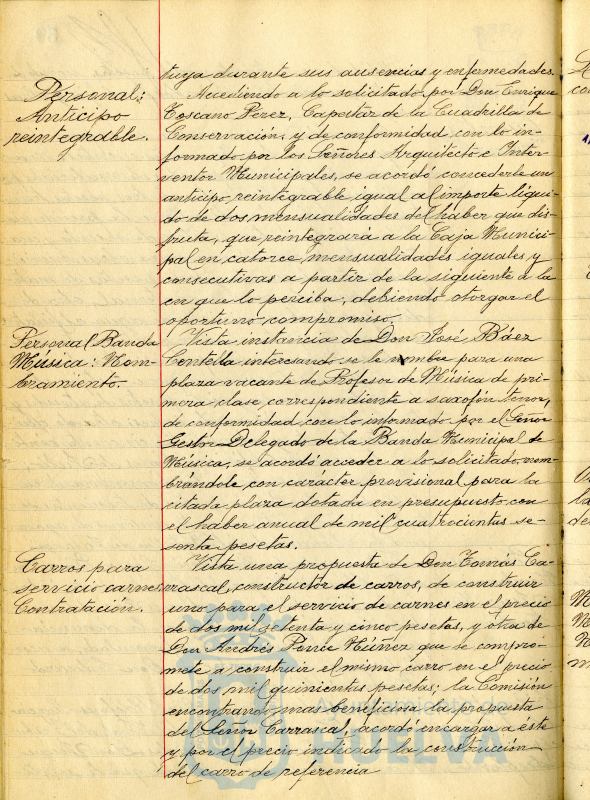 tuya durante sus ausencias y enfermedades.
Personal:
Anticipo
reintegrable.
Accediendo a lo solicitado por Don Enrique
Toscano Perez, Capataz de la Cuadrilla de
Conservación, y de conformidad con lo in-
formado por los Señores Arquitecto e Inter-
ventor Municipales, se acordó concederle un
anticipo reintegrable igual al importe líqui-
do de dos mensualidades del haber que dis-
fruta, que reintegrará a la Caja Munici-
pal en catorce mensualidades iguales y
consecutivas a partir de la siguiente a la
en que lo perciba, debiendo otorgar el
oportuno compromiso.
Personal Banda
Música: Nom-
bramiento.
Vista instancia de Don José Báez
Centella interesando se le nombre para una
plaza vacante de Profesor de Música de pri-
mera clase correspondiente a saxofón tenor,
de conformidad con lo informado por el Señor
Gestor Delegado de la Banda Municipal de
Música, se acordó acceder a lo solicitado, nom-
brándole con carácter provisional para la
citada plaza dotada en presupuesto con
el haber anual de mil cuatrocientas se-
senta pesetas.
Carros para
servicio carnes
Contratación.
Vista una propuesta de Don Tomás Ca-
rrascal, constructor de carros, de construir
uno para el servicio de carnes en el precio
de dos mil setenta y cinco pesetas, y otra de
Don Andrés Ponce Núñez que se compro-
mete a construir el mismo carro en el precio
de dos mil quinientas pesetas; la Comisión
encontrando mas beneficiosa la propuesta
del Señor Carrascal, acordó encargar a éste
y por el precio indicado la construcción
del carro de referencia
HUELVA